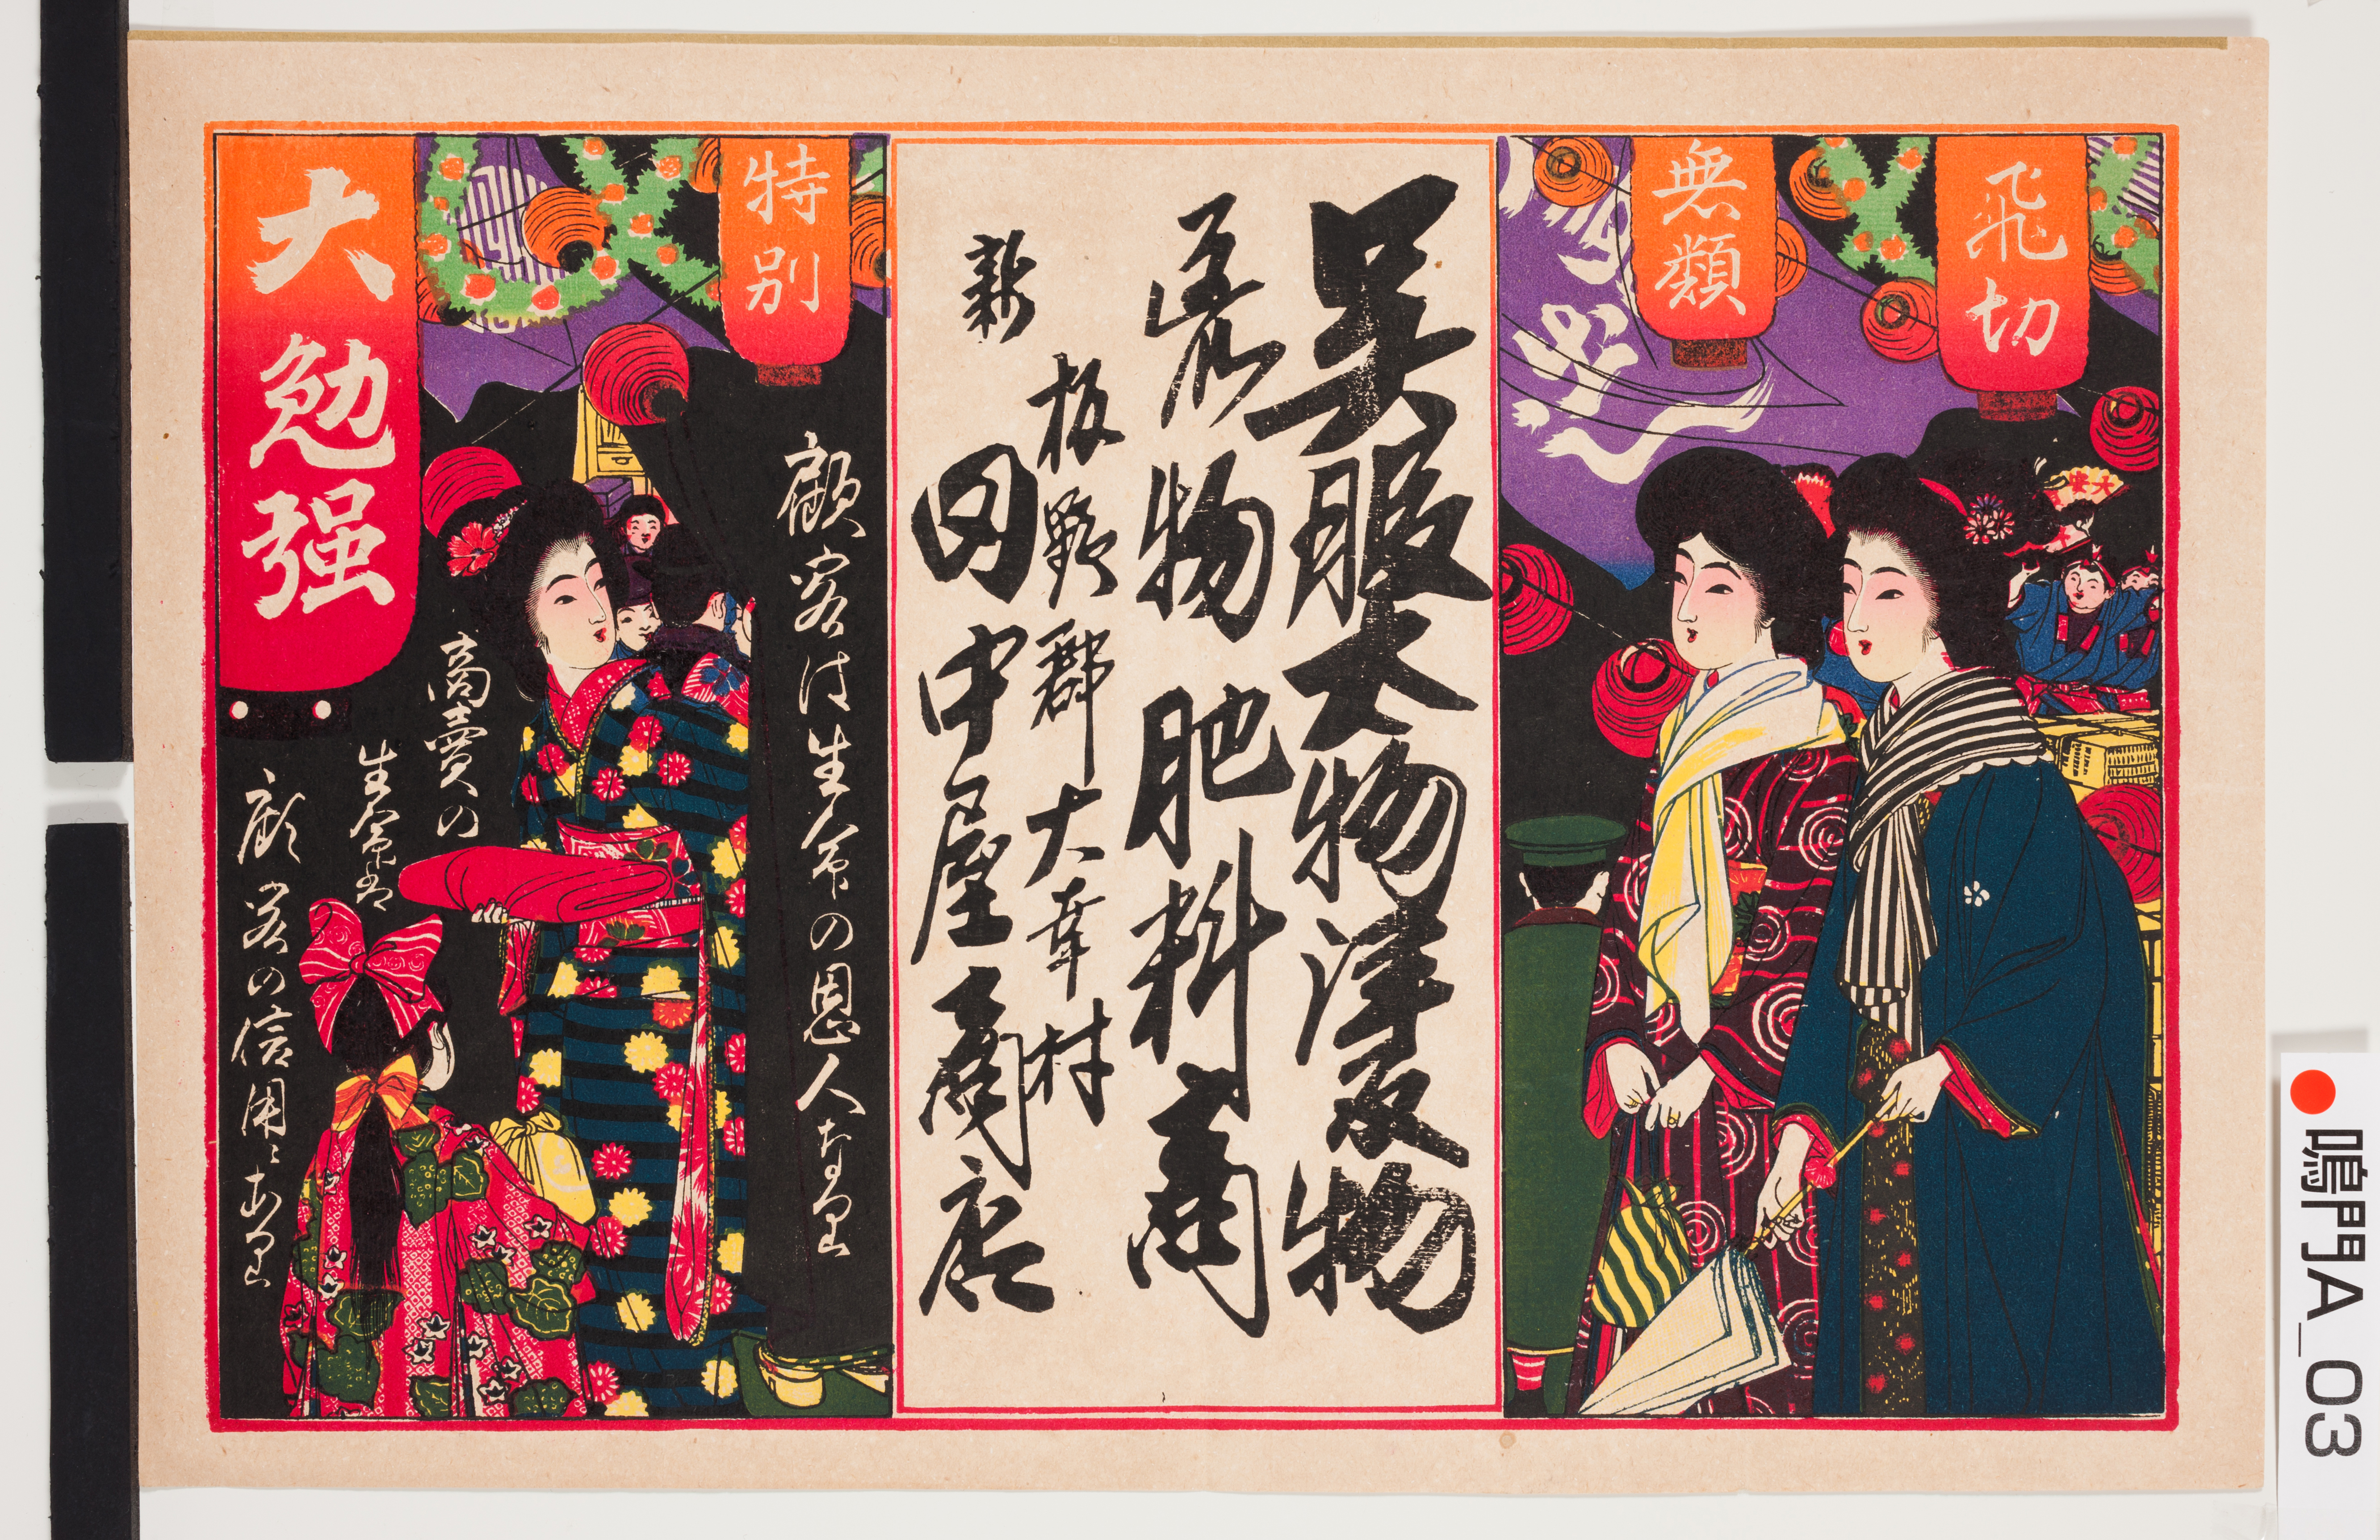 飛切
無類
大安
呉服太物洋反物
荒物肥料商
板野郡大幸村
新
田中屋商店
特別
顧客は生命の恩人なり
大勉强
商賣の
生命は
顧客の信用にあり
鳴門A_03